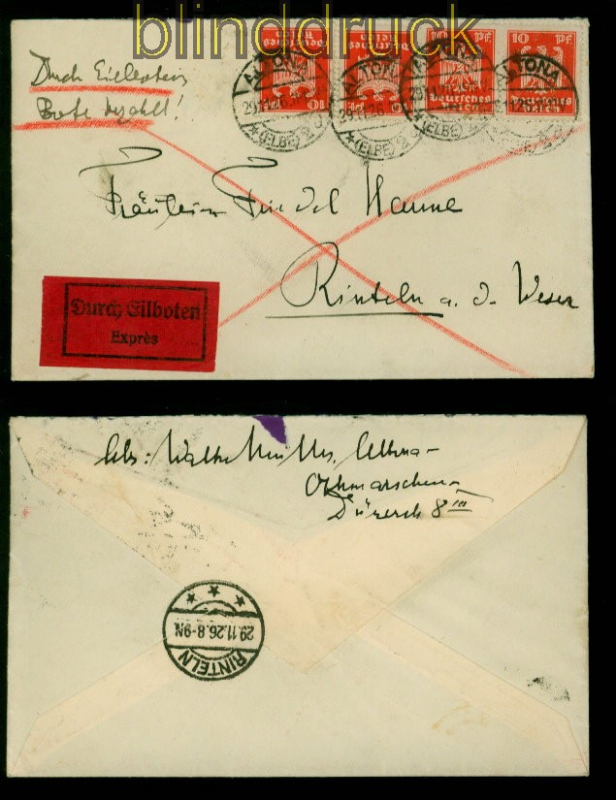 blinddruck.eu
10 Pf 10 Pf
Deutsches Reich
ALTONA
29.11.26
* (ELBE) 2
Durch Eilboten
Bote bezahlt!
Fräulein Friedel Hanne
Rinteln a. d. Weser
Durch Eilboten
Exprès
Abs: Walther Müller, Altona-
Othmarschen
Dürerstr 8 III
29.11.26.8-9N.
RINTELN